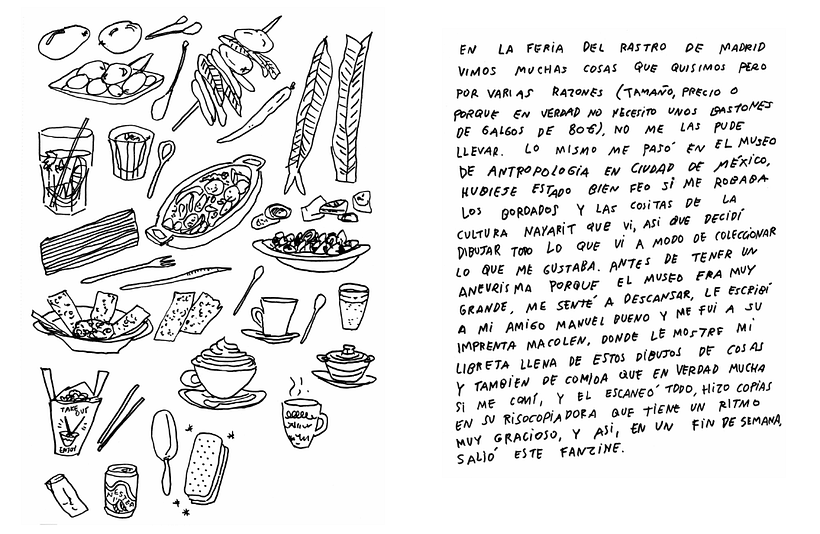 TAKE
OUT
ENJOY
EN LA FERIA DEL RASTRO DE MADRID
VIMOS MUCHAS COSAS QUE QUISIMOS PERO
POR VARIAS RAZONES (TAMAÑO, PRECIO O
PORQUE EN VERDAD NO NECESITO UNOS BASTONES
DE GALGOS DE 80€), NO ME LAS PUDE
LLEVAR. LO MISMO ME PASÓ EN EL MUSEO
DE ANTROPOLOGÍA EN CIUDAD DE MÉXICO,
HUBIESE ESTADO BIEN FEO SI ME ROBABA
LOS BORDADOS Y LAS COSITAS DE LA
CULTURA NAYARIT QUE VI, ASI QUE DECIDÍ
DIBUJAR TODO LO QUE VI A MODO DE COLECCIONAR
LO QUE ME GUSTABA. ANTES DE TENER UN
ANEURISMA PORQUE EL MUSEO ERA MUY
GRANDE, ME SENTÉ A DESCANSAR, LE ESCRIBÍ
A MI AMIGO MANUEL BUENO Y ME FUI A SU
IMPRENTA MACOLEN, DONDE LE MOSTRE MI
LIBRETA LLENA DE ESTOS DIBUJOS DE COSAS
Y TAMBIÉN DE COMIDA QUE EN VERDAD MUCHA
SI ME COMÍ, Y EL ESCANEÓ TODO, HIZO COPIAS
EN SU RISOCOPIADORA QUE TIENE UN RITMO
MUY GRACIOSO, Y ASI, EN UN FIN DE SEMANA,
SALIÓ ESTE FANZINE.